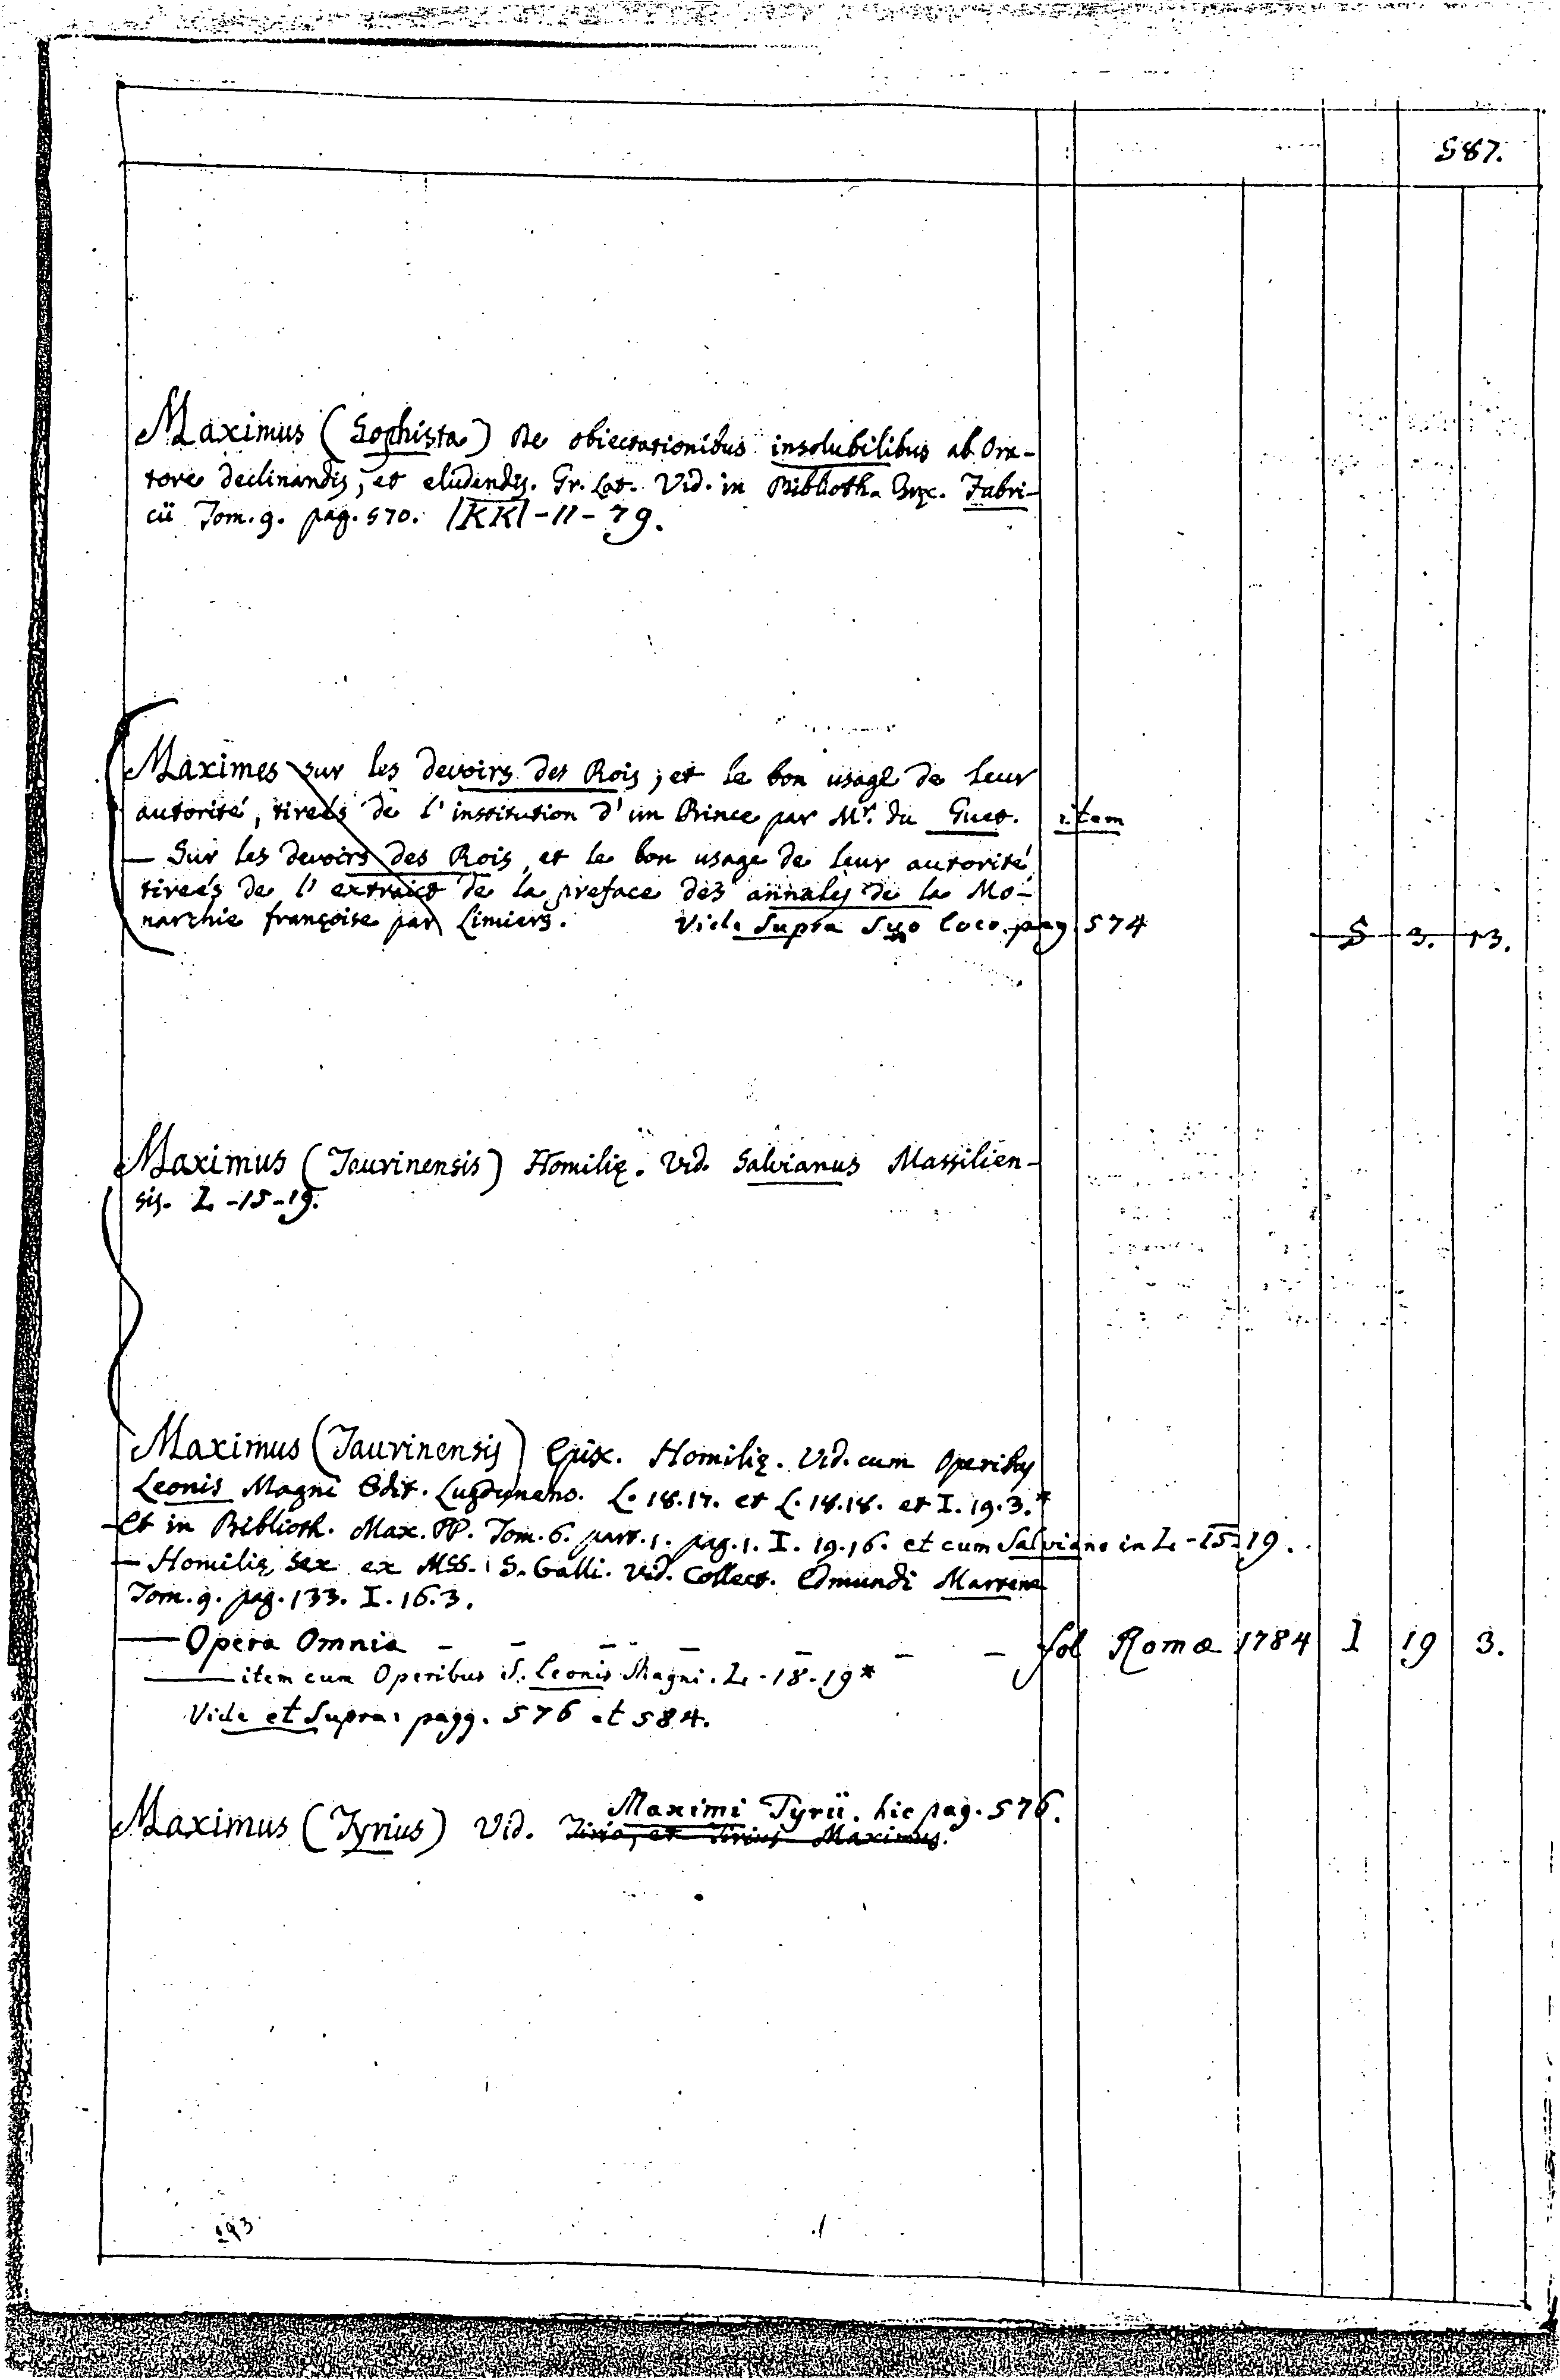 587.
Maximus (Sophista) De obiectationibus insolubilibus ab Ora-
tore declinandis, et eludendis. Gr. Lat. Vid. in Biblioth. Gręc. Fabri-
cii Tom. 9. pag. 570. |KK|-11-79.
Maximes sur les devoirs des Rois, et le bon usage de leur
autorité, tireés de l'institution d'un Prince par Mr. du Guet. item
— Sur les devoirs des Rois, et le bon usage de leur autorité
tireés de l'extraict de la preface des annales de la Mo-
narchie françoise par Limiers. Vide Supra Suo loco. pag 574 S 3. 13.
Maximus (Taurinensis) Homilię. Vid. Salvianus Massilien-
sis. L-15-19.
Maximus (Taurinensis) Episc. Homilię. Vid. cum Operibus
Leonis Magni Edit. Lugdunens. L. 18.17. et L. 18.18. et I. 19.3.*
- Et in Biblioth. Max. PP. Tom. 6. part. 1. pag. 1. I. 19.16. et cum Salviano in L-15-19.
— Homilię sex ex Mss. S. Galli. Vid. Collect. Edmundi Martene
Tom. 9. pag. 133. I. 16.3.
— Opera Omnia - - - - - - fol Romæ 1784 I 19 3.
— item cum Operibus S. Leonis Magni. L-18-19*
Vide et Supra: pagg. 576 et 584.
Maximi Tyrii. hic pag. 576.
Maximus (Tyrius) Vid. Tirio, et Tirius Maximus.
293